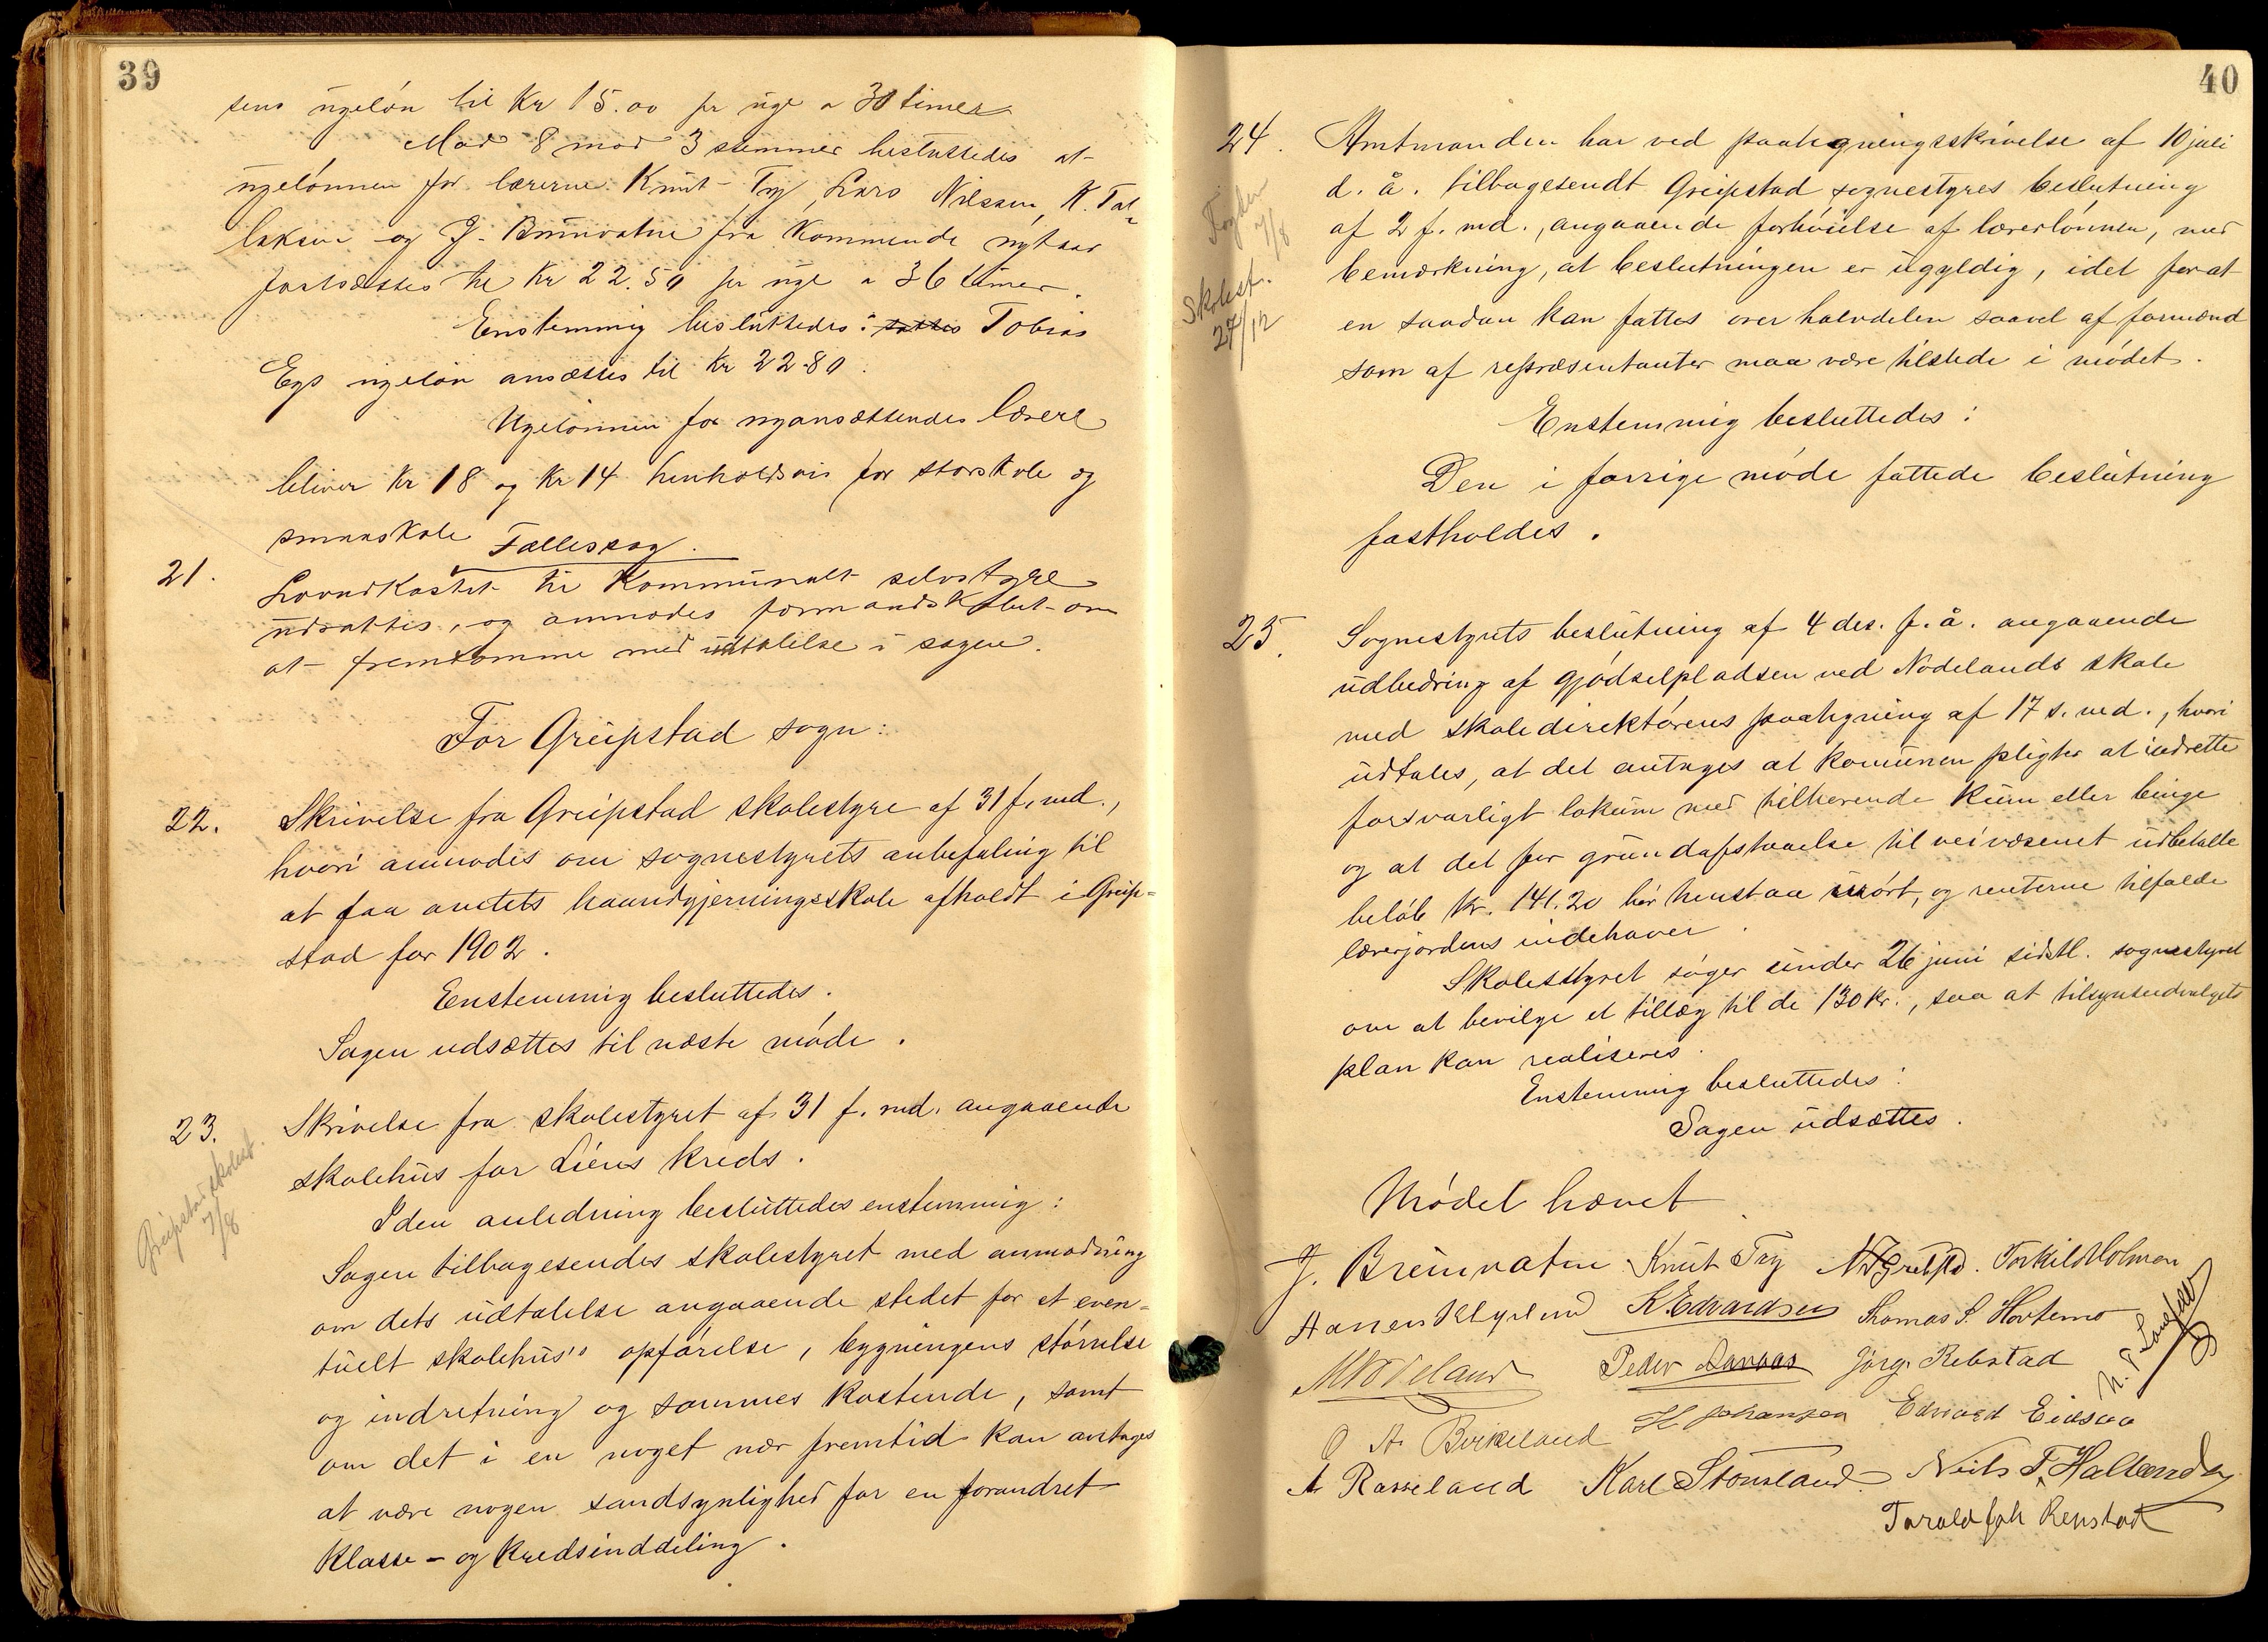 39
sens ugeløn til Kr 15.00 pr uge a 30 timer
Mod 8 mod 3 stemmer besluttedes at
ugelønnen for lærerne Knut Try, Lars Nilssen, K. Tal-
laksen og J. Brunvatne fra kommende nytaar
fortsættes til Kr 22.50 pr uge a 36 timer.
Enstemmig besluttedes: Tobias
Egs ugeløn ansættes til Kr 22-80.
Ugelønnen for nyansættendes lærere
bliver Kr 18 og Kr 14 henholdsvis for storskole og
smaaskole
Fællessag.
21. Lovudkastet til kommunalt selvstyre
udsattes, og anmodes formandskabet om
at fremkomme med udtalelse i sagen.
For Greipstad sogn:
22. Skrivelse fra Greipstad skolestyre af 31 f. md.,
hvori anmodes om sognestyrets anbefaling til
at faa amtets haandgjerningsskole afholdt i Greip-
stad for 1902.
Enstemmig besluttedes.
Sagen udsættes til næste møde.
23. Skrivelse fra skolestyret af 31 f. md. angaaende
skolehus for Liens kreds.
I den anledning besluttedes enstemmig:
Greipstad skolest.
7/8
Sagen tilbagesendes skolestyret med anmodning
om dets udtalelse angaaende stedet for et even-
tuelt skolehus's opførelse, bygningens størrelse
og indretning og sammes kostende, samt
om det i en noget nær fremtid kan antages
at være nogen sandsynlighed for en forandret
klasse- og kredsinddeling.
40
24. Amtmanden har ved paategningsskrivelse af 10 juli
d. å. tilbagesendt Greipstad sognestyres beslutning
af 2 f. md., angaaende forhøielse af lærerlønnen, med
bemærkning, at beslutningen er ugyldig, idet for at
en saadan kan fattes over halvdelen saavel af formænd
som af repræsentanter maa være tilstede i mødet.
Fogden
7/8
Skolest.
27/12
Enstemmig besluttedes:
Den i forrige møde fattede beslutning
fastholdes.
25. Sognestyrets beslutning af 4 des. f. å. angaaende
udbedring af gjødselpladsen ved Nodelands skole
med skoledirektørens paategning af 17 s. md., hvori
udtales, at det antages at komunen pligter at indrette
forsvarligt lokum med tilhørende kum eller binge
og at det for grundafstaaelse til veivæsenet udbetalte
beløb Kr. 141.20 bør henstaa urørt, og renterne tilfalde
lærerjordens indehaver.
Skolestyret søger under 26 juni sidstl. sognestyret
om at bevilge et tillæg til de 130 Kr., saa at tilsynsudvalgets
plan kan realiseres.
Enstemmig besluttedes:
Sagen udsættes.
Mødet hævet
J. Breunvatne Knut Try Torkild Holman
K. Edvardsen Thomas S. Hortemo
Peder Aanaas Jørg. Rebstad
O A Birkeland H Johansen Edvard Eidsaa
A Rosseland Karl Stousland Niels T. Halland
Torald Joh Repstad